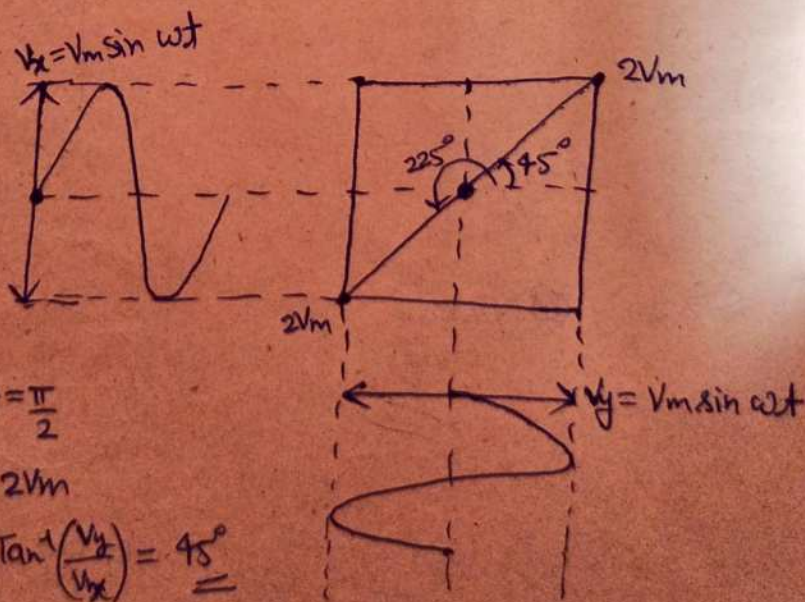 Vx = Vm sin ωt
2Vm
225°
45°
2Vm
= π/2
Vy = Vm sin ωt
2Vm
Tan⁻¹(Vy/Vx) = 45°